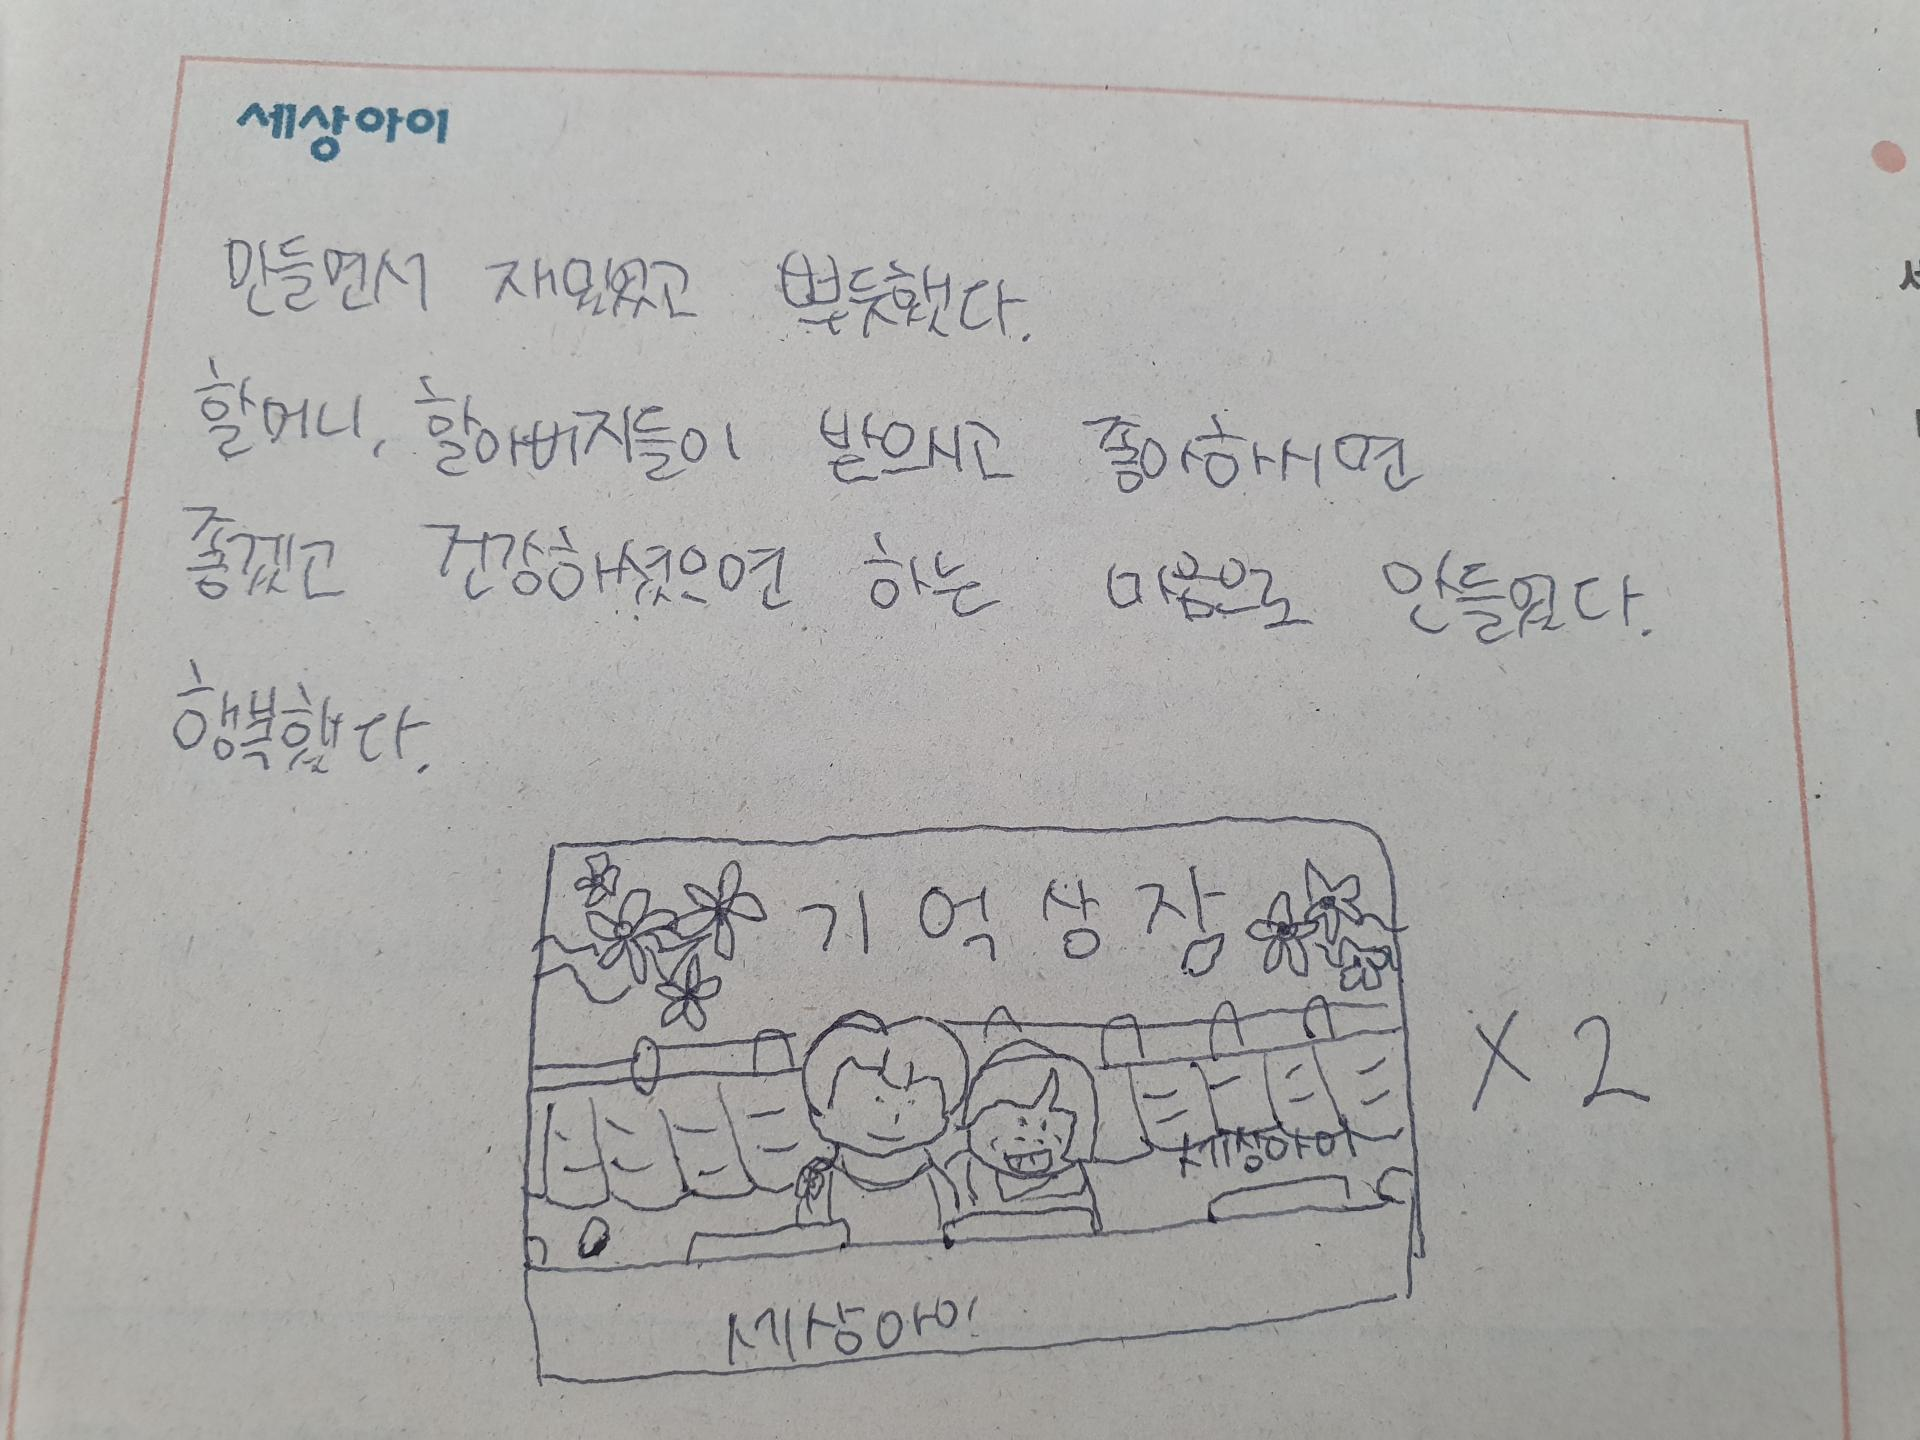 세상아이
만들면서 재밌었고 뿌듯했다.
할머니, 할아버지들이 받으시고 좋아하시면
좋겠고 건강하셨으면 하는 마음으로 만들었다.
행복했다.
기억상장
X 2
세상아이
세상아이